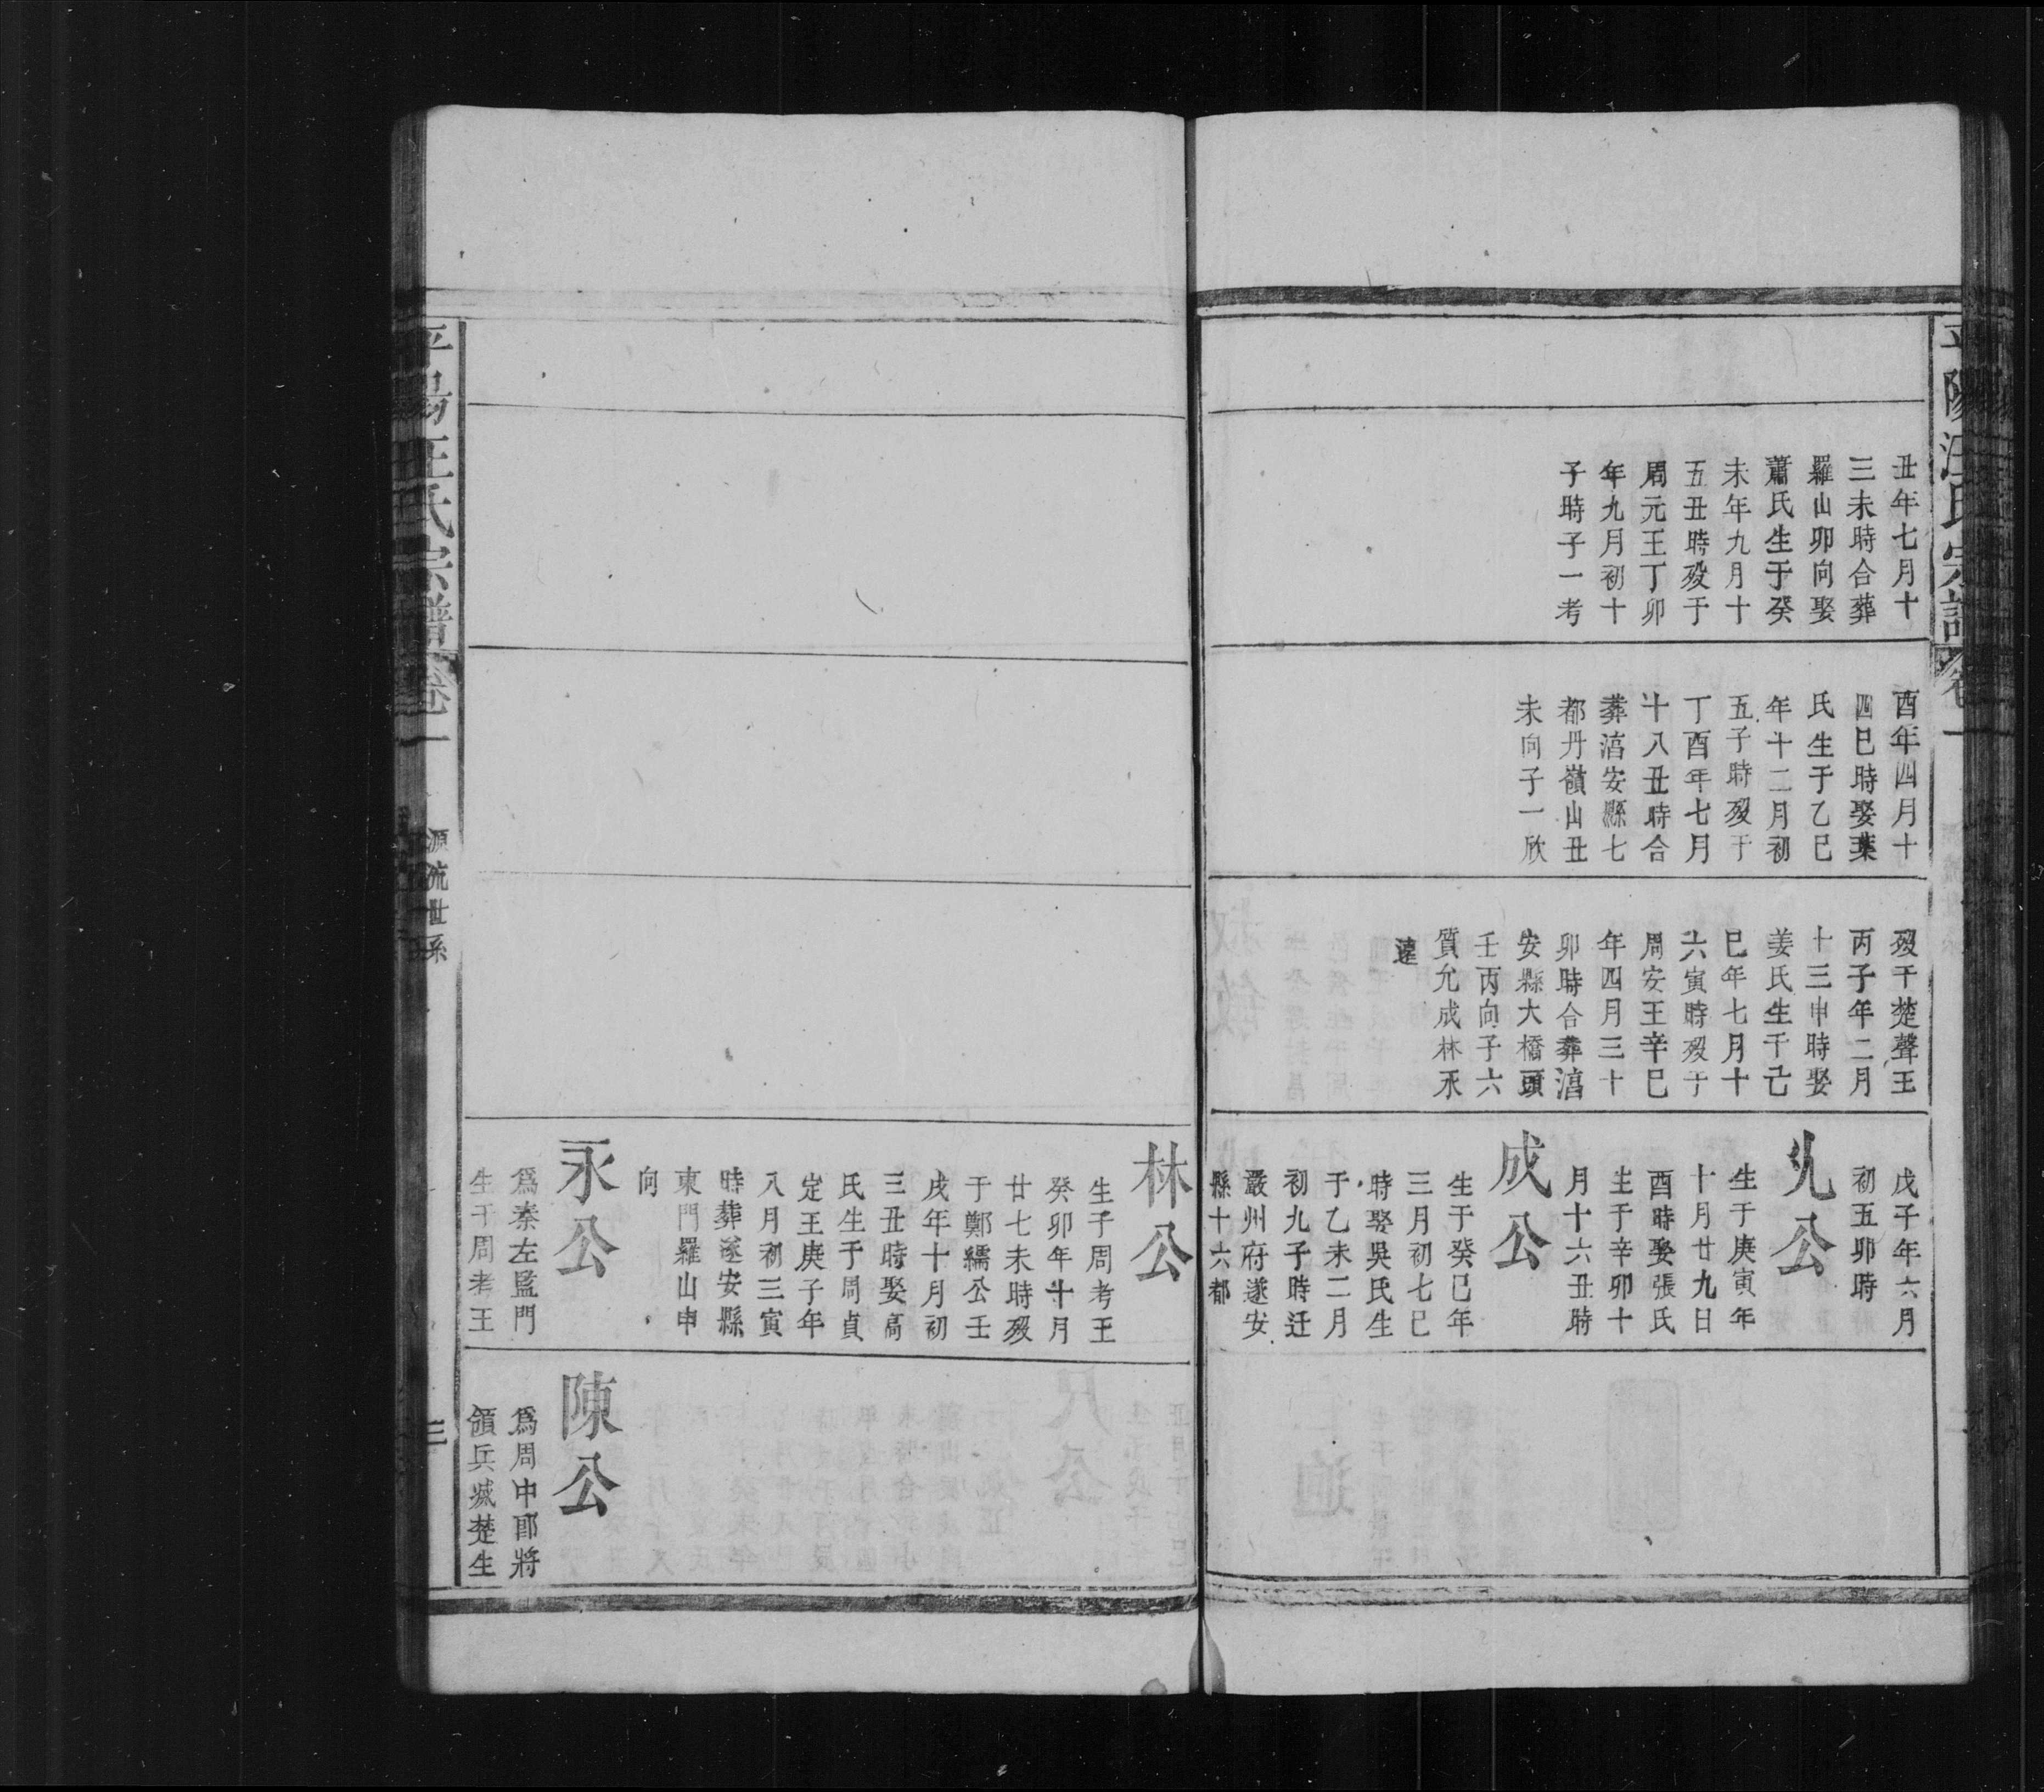 平陽汪氏宗譜
卷一
丑年七月十
三未時合葬
羅山卯向娶
蕭氏生于癸
未年九月十
五丑時歿于
周元王丁卯
年九月初十
子時子一考
酉年四月十
四巳時娶葉
氏生于乙巳
年十二月初
五子時歿于
丁酉年七月
十八丑時合
葬湻安縣七
都丹嶺山丑
未向子一欣
歿于楚聲王
丙子年二月
十三申時娶
姜氏生于己
巳年七月十
六寅時歿于
周安王辛巳
年四月三十
卯時合葬湻
安縣大橋頭
壬丙向子六
質允成林永
遠
戊子年六月
初五卯時
允公
生于庚寅年
十月廿九日
酉時娶張氏
生于辛卯十
月十六丑時
成公
生于癸巳年
三月初七巳
時娶吳氏生
于乙未二月
初九子時迁
嚴州府遂安
縣十六都
林公
生于周考王
癸卯年十月
廿七未時歿
于鄭繻公壬
戌年十月初
三丑時娶高
氏生于周貞
定王庚子年
八月初三寅
時葬遂安縣
東門羅山申
向
永公
爲秦左監門
生于周考王
陳公
爲周中郎將
領兵滅楚生
平陽汪氏宗譜
卷一
源流世系
三